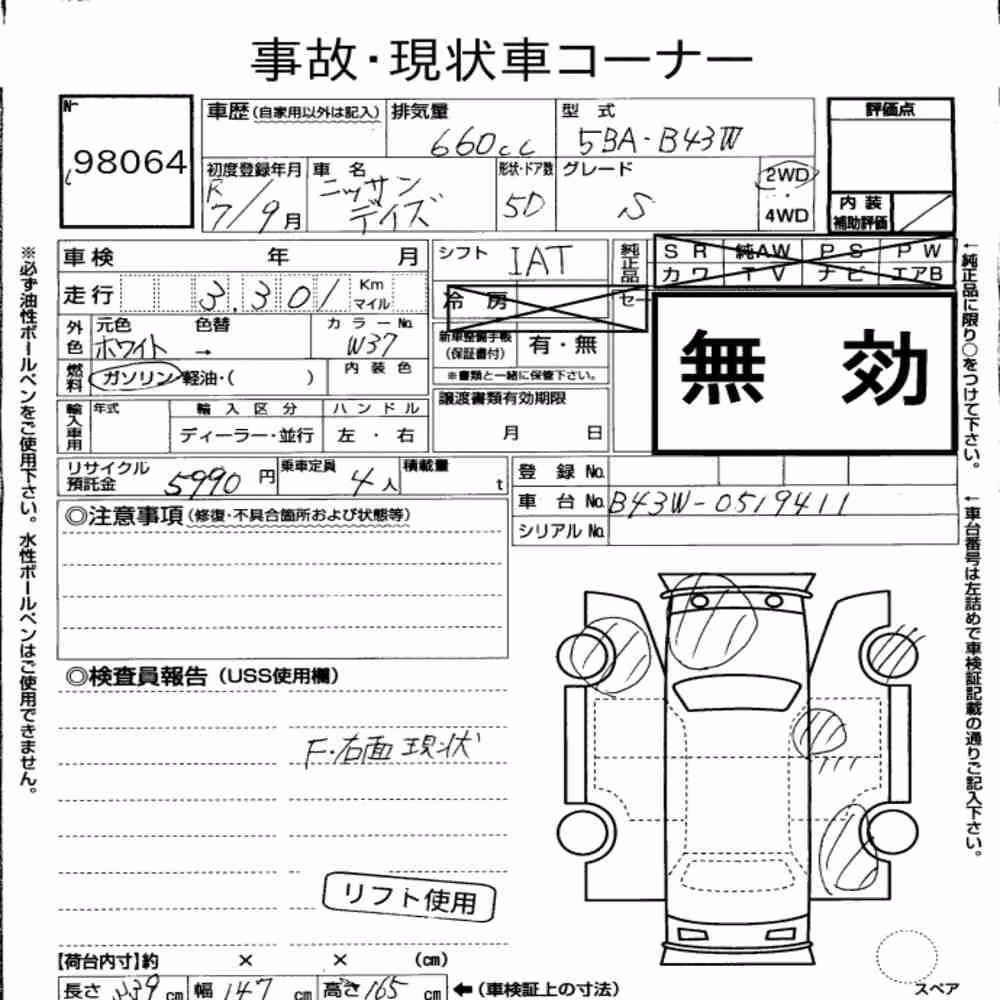 事故・現状車コーナー
№
98064
車歴(自家用以外は記入)
排気量
660cc
型 式
5BA-B43W
評価点
初度登録年月
R
7/9月
車 名
ニッサン
デイズ
形状・ドア数
5D
グレード
S
2WD
・
4WD
内 装
補助評価
車検 年 月
シフト
IAT
純正品
SR 純AW PS PW
カワ TV ナビ エアB
走行 3,301 Km マイル
冷 房
セー
外色
元色 色替
ホワイト →
カラーNo.
W37
新車整備手帳
(保証書付)
有・無
※書類と一緒に保管下さい。
無 効
燃料
ガソリン・軽油・( )
内 装 色
輸入車用
年式
輸 入 区 分
ディーラー・並行
ハ ン ド ル
左 ・ 右
譲渡書類有効期限
月 日
リサイクル
預託金
5990 円
乗車定員
4人
積載量
t
登 録 No.
車 台 No. B43W-0519411
シリアル No.
◎注意事項(修復・不具合箇所および状態等)
◎検査員報告(USS使用欄)
F・右面 現状
リフト使用
【荷台内寸】約 × × (cm)
長さ 339 cm 幅 147 cm 高さ 165 cm
←(車検証上の寸法)
スペア
※必ず油性ボールペンをご使用下さい。水性ボールペンはご使用できません。
←純正品に限り○をつけて下さい。
←車台番号は左詰めで車検証記載の通りご記入下さい。